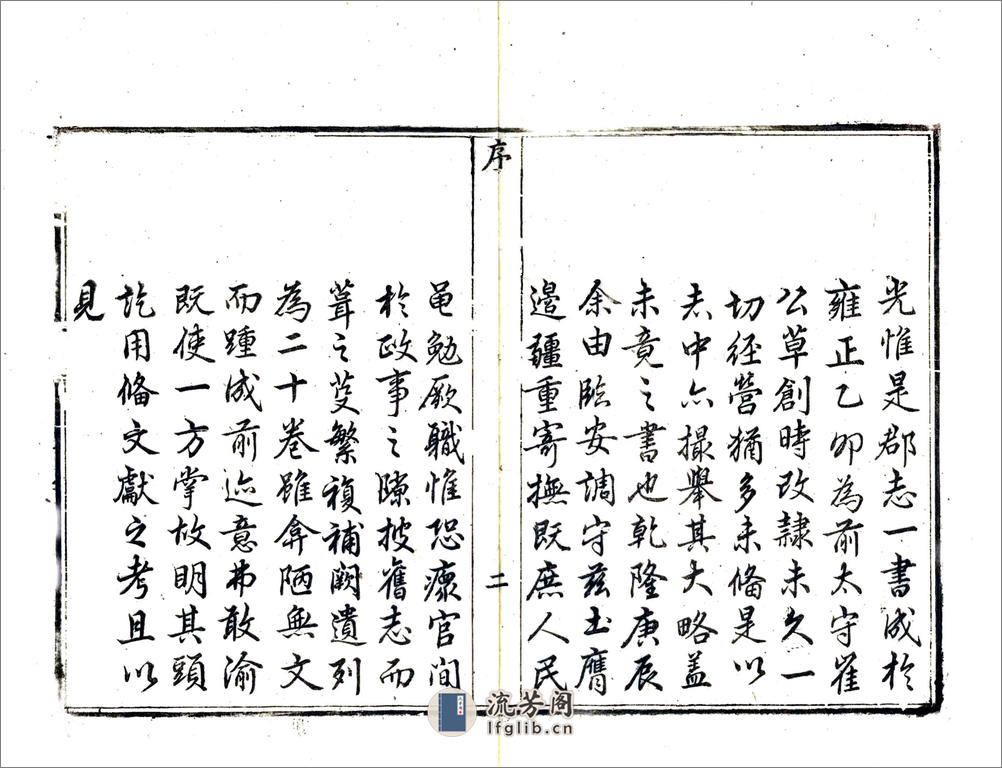 光惟是郡志一書成於
雍正乙卯為前太守崔
公草創時改隸未久一
切經營猶多未備是以
志中亦撮舉其大略蓋
未竟之書也乾隆庚辰
余由臨安調守茲土膺
邊疆重寄撫既庶人民
序
二
黽勉厥職惟恐瘝官間
於政事之隙披舊志而
葺之芟繁複補闕遺列
為二十卷雖弇陋無文
而踵成前迹意弗敢渝
既使一方掌故明其頭
訖用備文獻之考且以
見
流芳阁
lfglib.cn